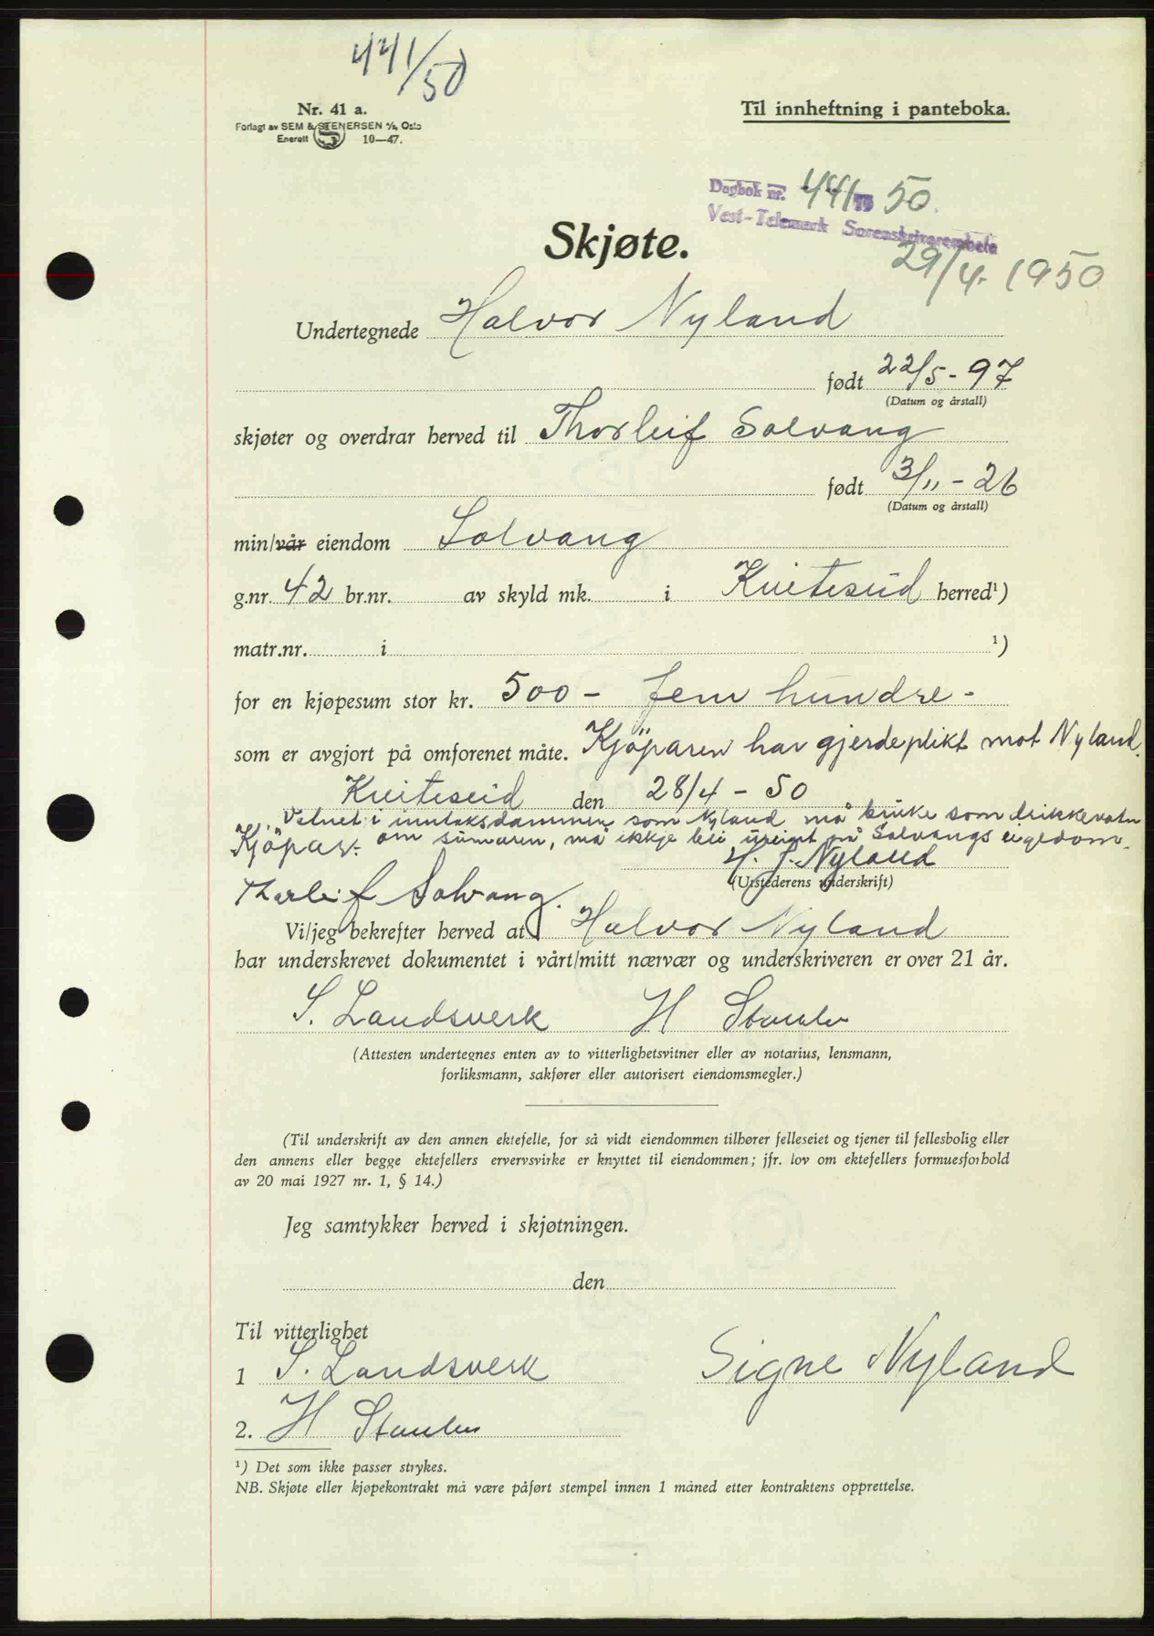 441/50
Nr. 41 a.
Forlagt av SEM & STENERSEN A/S, Oslo
Enerett S 10—47.
Til innheftning i panteboka.
Dagbok nr. 441 19 50
Vest-Telemark Sorenskrivarembete
29/4-1950
Skjøte.
Undertegnede Halvor Nyland
født 22/5-97
(Datum og årstall)
skjøter og overdrar herved til Thorleif Solvang
født 3/11-26
(Datum og årstall)
min/vår eiendom Solvang
g.nr. 42 br.nr. av skyld mk. i Kviteseid herred¹)
matr.nr. i ¹)
for en kjøpesum stor kr. 500- fem hundre-
som er avgjort på omforenet måte. Kjöparen har gjerdeplikt mot Nyland.
Kviteseid den 28/4-50
Vatnet i inntaksdammen som Nyland må bruke som drikkevatn
om sumaren, må ikkje bli ureint på Solvangs eigedom.
Kjöpar:
H. J. Nyland
(Utstederens underskrift)
Thorleif Solvang.
Vi/jeg bekrefter herved at Halvor Nyland
har underskrevet dokumentet i vårt/mitt nærvær og underskriveren er over 21 år.
S. Landsverk H
(Attesten undertegnes enten av to vitterlighetsvitner eller av notarius, lensmann,
forliksmann, sakfører eller autorisert eiendomsmegler.)
(Til underskrift av den annen ektefelle, for så vidt eiendommen tilhører felleseiet og tjener til fellesbolig eller
den annens eller begge ektefellers ervervsvirke er knyttet til eiendommen; jfr. lov om ektefellers formuesforhold
av 20 mai 1927 nr. 1, § 14.)
Jeg samtykker herved i skjøtningen.
den
Til vitterlighet
1 S. Landsverk
Signe Nyland
2. H
¹) Det som ikke passer strykes.
NB. Skjøte eller kjøpekontrakt må være påført stempel innen 1 måned etter kontraktens opprettelse.